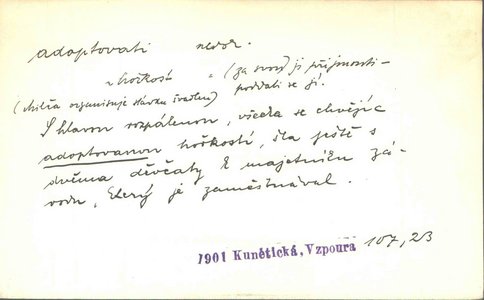 adoptovati nedok.
„hořkost“ (za svou) ji přijmouti –
poddati se jí.
(Míča organisuje stávku švadlen)
S hlavou rozpálenou, všecka se chvějíc
adoptovanou hořkostí, šla ještě s
dvěma děvčaty k majetníku zá-
vodu, který je zaměstnával.
1901 Kunětická, Vzpoura 107,23